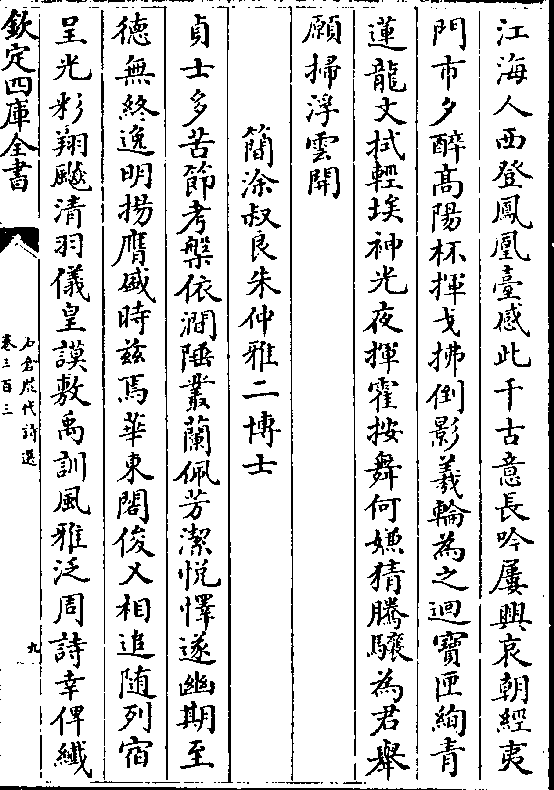 江海人西登鳳凰臺感此千古意長吟屢興哀朝經夷
門市夕醉高陽杯揮戈拂倒影羲輪為之迴寶匣絢青
蓮龍文拭輕埃神光夜揮霍按舞何嫌猜騰驤為君舉
願掃浮雲開
簡涂叔良朱仲雅二博士
貞士多苦節考槃依澗陲叢蘭佩芳潔悦懌遂幽期至
德無終逸明揚膺盛時兹焉華東閣俊乂相追随列宿
呈光彩翔飈清羽儀皇謨敷禹訓風雅泛周詩幸俾纖
欽定四庫全書
石倉歴代詩選
卷三百三
九